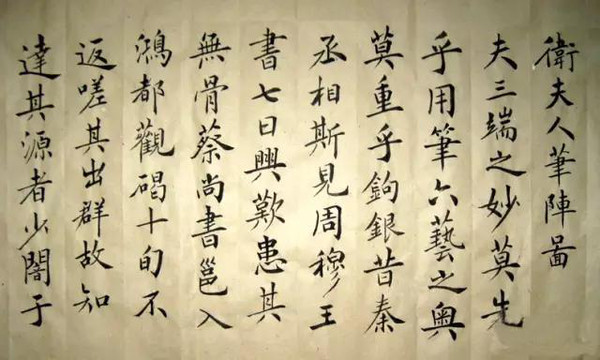 衛夫人筆陣圖
夫三端之妙莫先
乎用筆六藝之奧
莫重乎鉤銀昔秦
丞相斯見周穆王
書七日興歎患其
無骨蔡尚書邕入
鴻都觀碣十旬不
返嗟其出群故知
達其源者少闇于